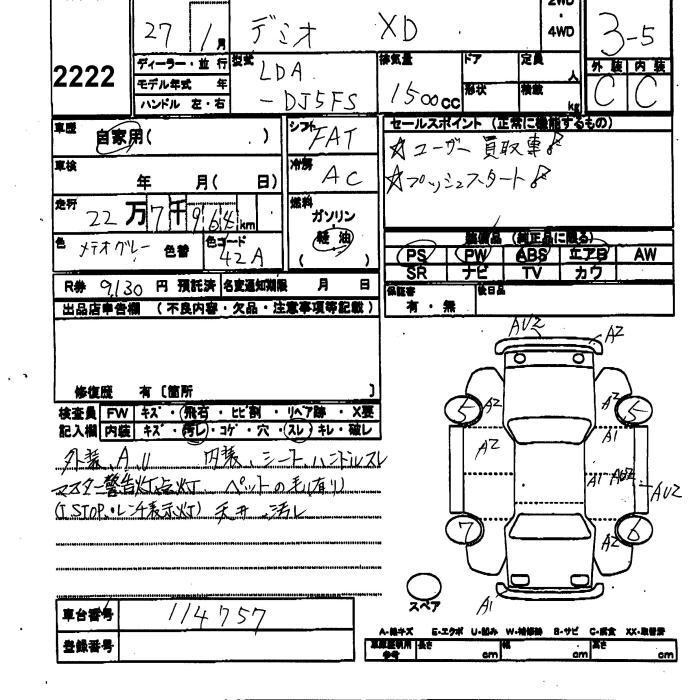 27 1月 デミオ XD 2WD・4WD 3-5
2222
ディーラー・並行 型式 LDA-DJ5FS 排気量 1500cc ドア 定員 人 外装 C 内装 C
モデル年式 年 形状 積載 kg
ハンドル 左・右
車歴 自家用( ) シフト FAT
車検 年 月( 日) 冷房 AC
走行 22万7千964km 燃料 ガソリン 軽油 ( )
色 メテオグレー 色替 色コード 42A
セールスポイント (正常に機能するもの)
☆ユーザー買取車
☆プッシュスタート
装備品 (純正品に限る)
PS PW ABS エアB AW
SR ナビ TV カワ
保証書 有・無 後日品
R券 9,130 円 預託済 名変通知期限 月 日
出品店申告欄 (不良内容・欠品・注意事項等記載)
修復歴 有 [箇所 ]
検査員 FW キズ・飛石・ヒビ割・リペア跡・X要
記入欄 内装 キズ・汚レ・コゲ・穴・スレ・キレ・破レ
外装、A、U 内装、シート、ハンドルスレ
マスター警告灯点灯 ペットの毛(有り)
(I STOP・レンチ表示灯) 天井 汚レ
AU2
A2
5 A2 A2 5
A2 A1
A1 AU2
AU2
7 A2 6
A1
スペア
車台番号 114757
登録番号
A-線キズ E-エクボ U-凹み W-補修跡 B-サビ C-腐食 XX-取替済
車庫証明用参考 長さ cm 幅 cm 高さ cm